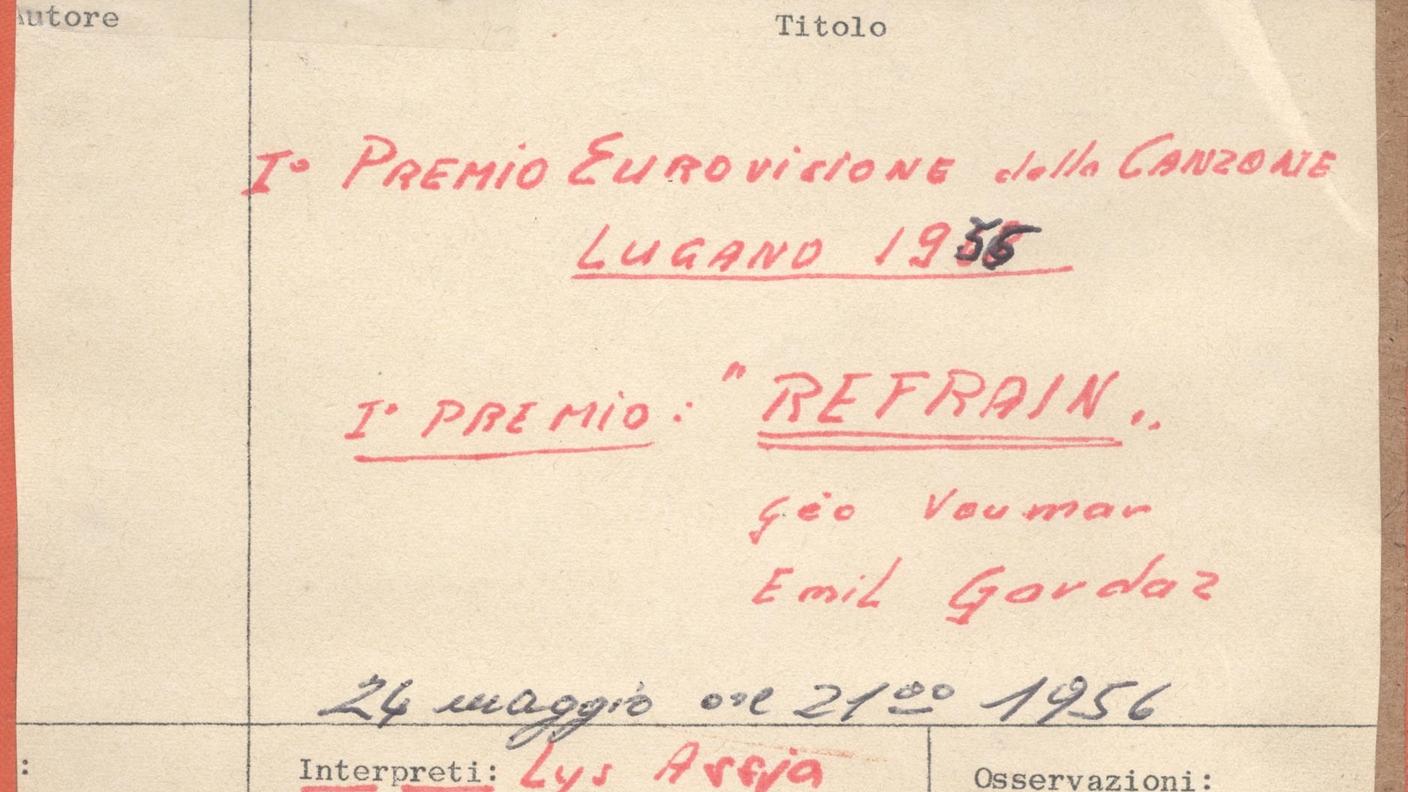 Autore Titolo
I° PREMIO EUROVISIONE della CANZONE
LUGANO 1956
I° PREMIO: "REFRAIN"
Géo Voumar
Emil Gardaz
24 maggio ore 21⁰⁰ 1956
: Interpreti: Lys Assja Osservazioni: